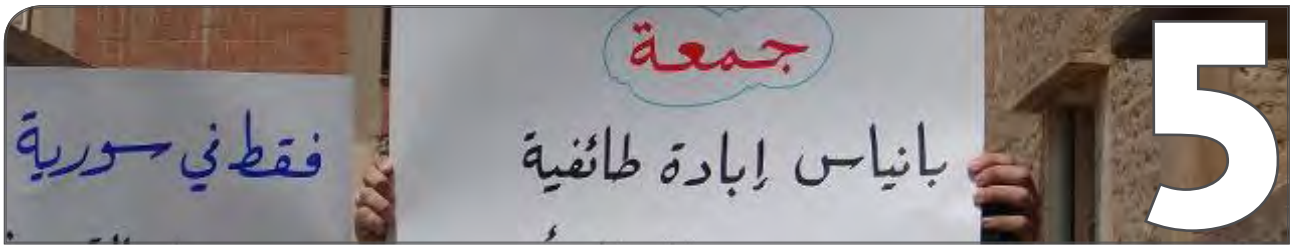 جمعة
بانياس إبادة طائفية
فقط في سورية
5